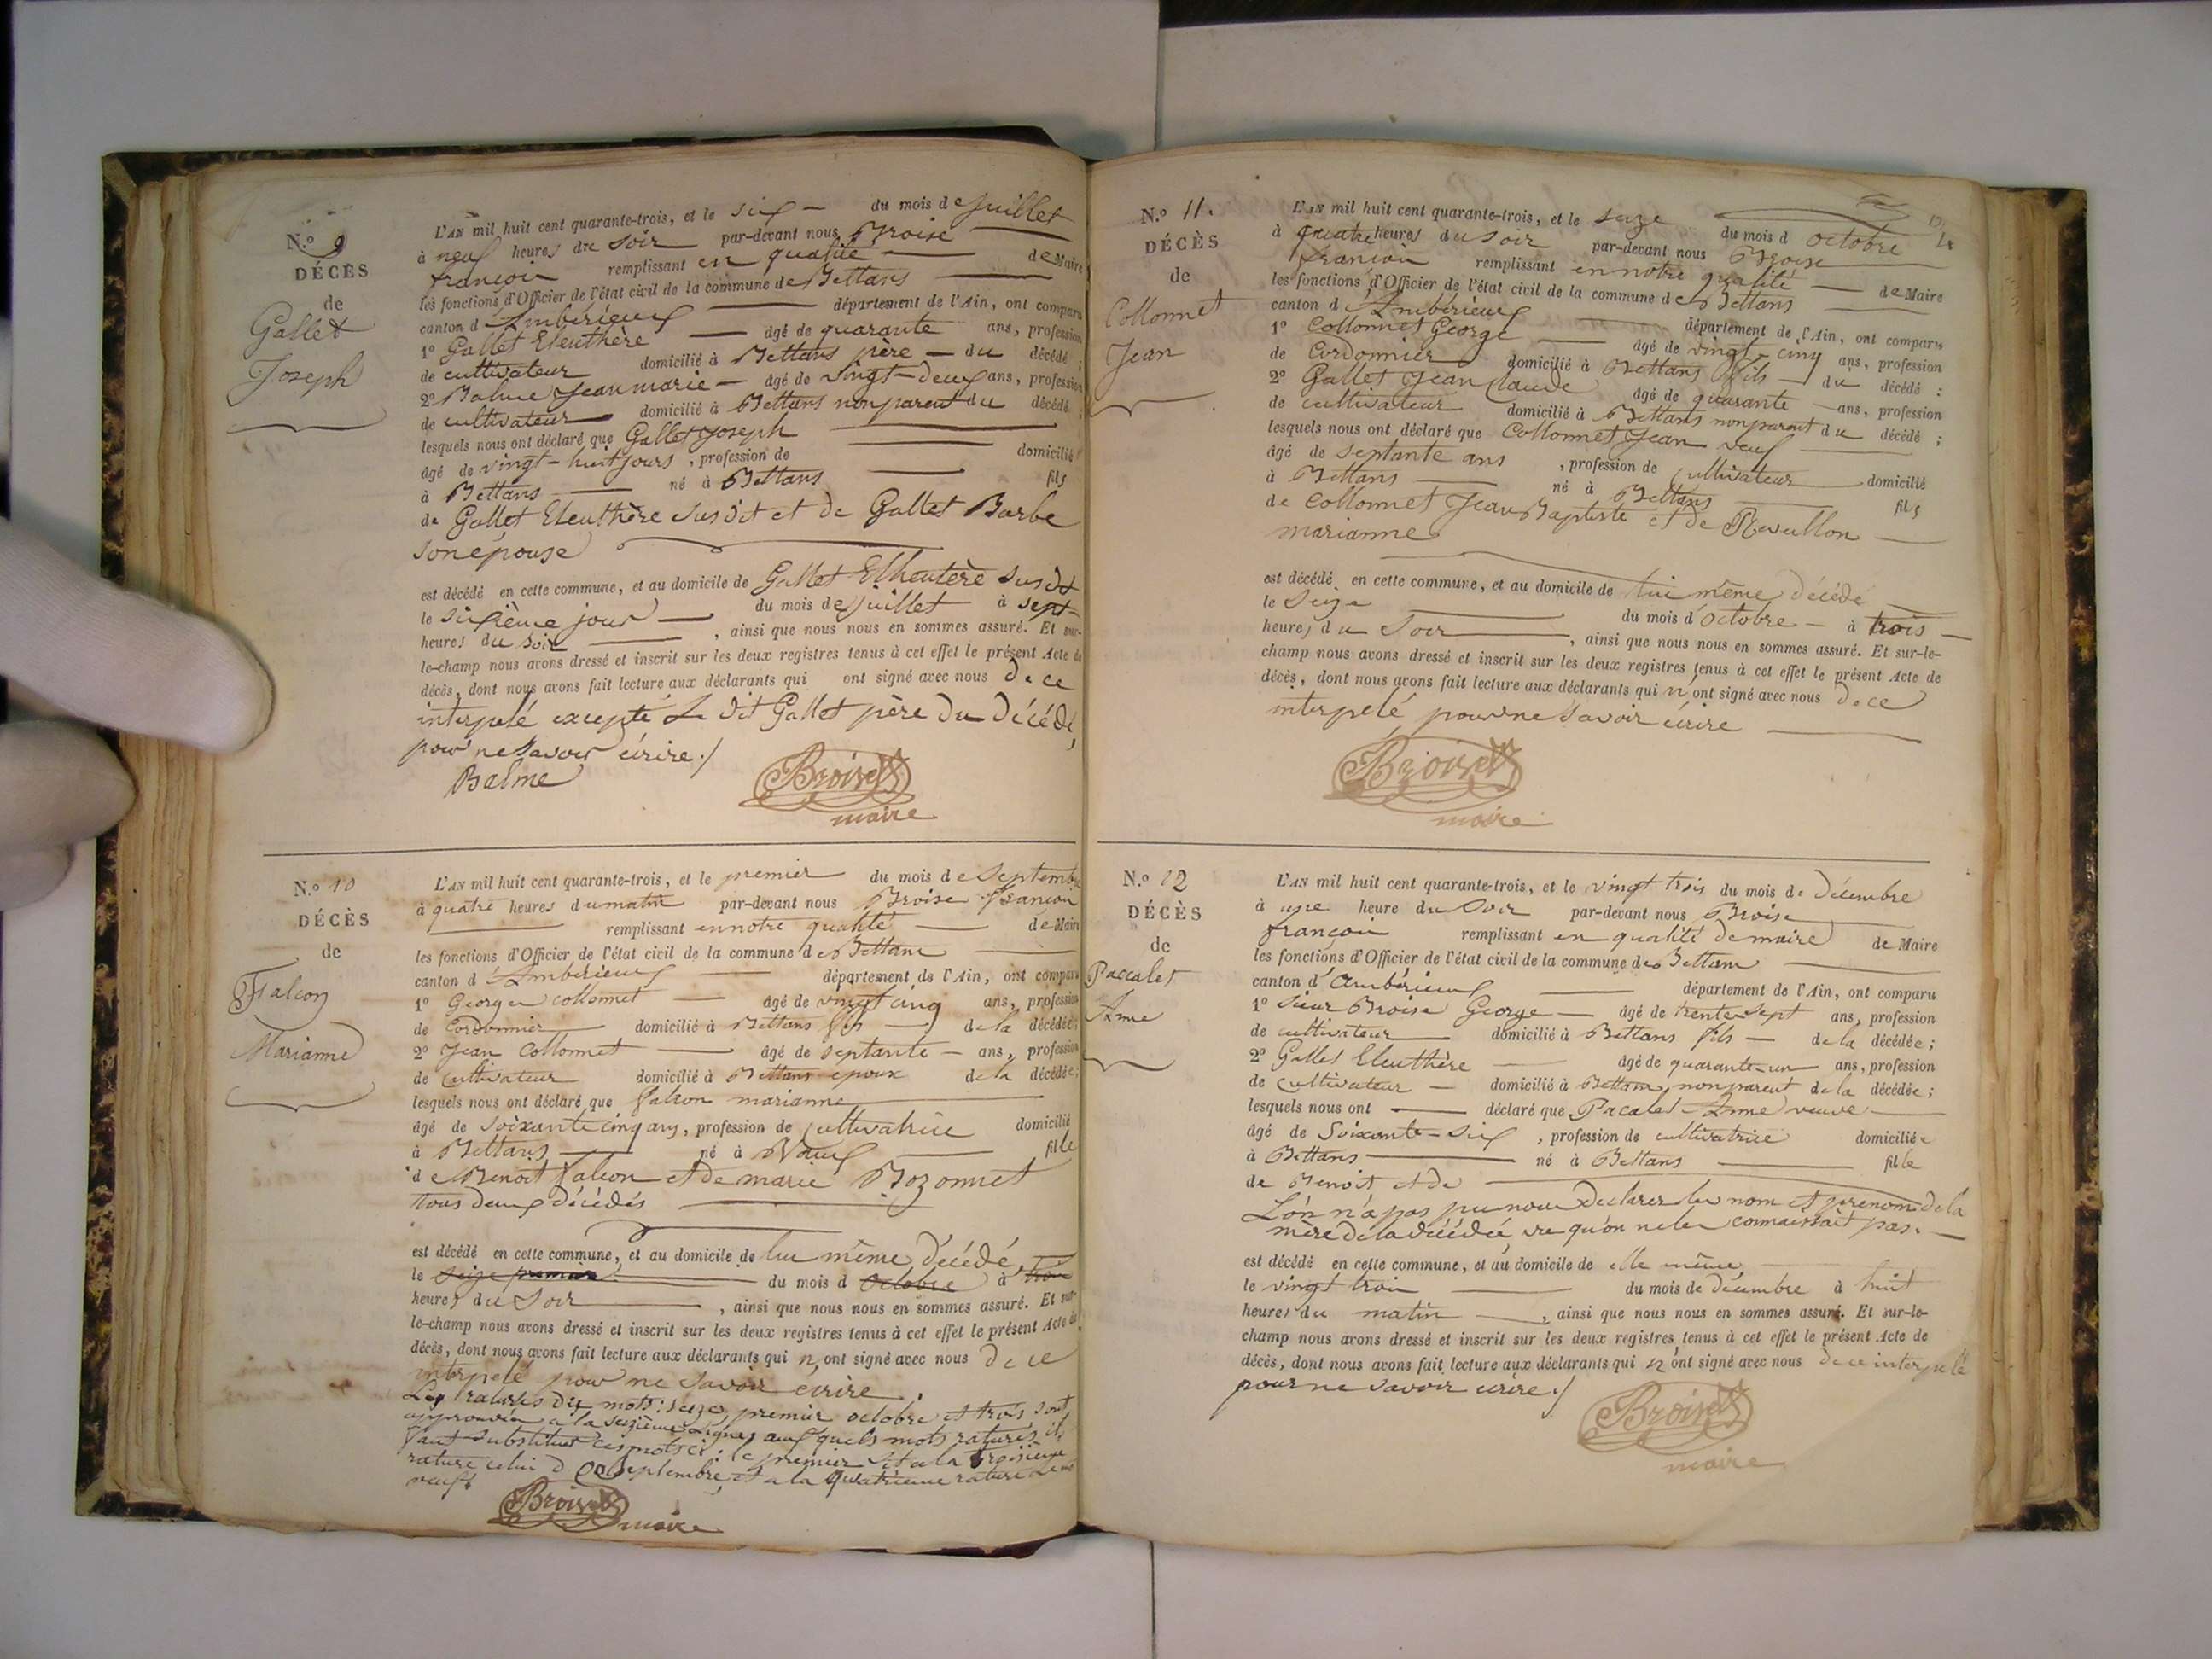 N.o 9
DÉCÈS
de
Gallet
Joseph
L'AN mil huit cent quarante-trois, et le six du mois de juillet
à neuf heures du soir par-devant nous Broise
françois remplissant en qualité de Maire
les fonctions d'Officier de l'état civil de la commune de Bettans
canton d'Ambérieux département de l'Ain, ont comparu
1o Gallet Eleuthère âgé de quarante ans, profession
de cultivateur domicilié à Bettans père du décédé ;
2o Balme Jean marie âgé de vingt-deux ans, profession
de cultivateur domicilié à Bettans non parent du décédé ;
lesquels nous ont déclaré que Gallet Joseph
âgé de vingt-huit jours , profession de domicilié
à Bettans né à Bettans fils
de Gallet Eleuthère susdit et de Gallet Barbe
son épouse
est décédé en cette commune, et au domicile de Gallet Elheutère susdit
le sixième jour du mois de juillet à sept
heures du soir , ainsi que nous nous en sommes assuré. Et sur-
le-champ nous avons dressé et inscrit sur les deux registres tenus à cet effet le présent Acte de
décès, dont nous avons fait lecture aux déclarants qui ont signé avec nous de ce
interpelé excepté Le dit Gallet père du décédé,
pour ne savoir écrire ./
Balme Broise
maire
N.o 10
DÉCÈS
de
Falcon
Marianne
L'AN mil huit cent quarante-trois, et le premier du mois de Septembre
à quatre heures du matin par-devant nous Broise françois
remplissant en notre qualité de Maire
les fonctions d'Officier de l'état civil de la commune de Bettans
canton d'Ambérieux département de l'Ain, ont comparu
1o George collonnet âgé de vingt cinq ans, profession
de Cordonnier domicilié à Bettans fils de la décédée ;
2o Jean Collonnet âgé de septante ans, profession
de cultivateur domicilié à Bettans époux de la décédée ;
lesquels nous ont déclaré que falcon marianne
âgé de soixante cinq ans, profession de cultivatrice domicilié
à Bettans né à fille
de Benoit falcon et de marie Bozonnet
tous deux décédés
est décédé en cette commune, et au domicile de lui même décédé
le seize premier du mois d octobre à trois
heures du soir , ainsi que nous nous en sommes assuré. Et sur-
le-champ nous avons dressé et inscrit sur les deux registres tenus à cet effet le présent Acte de
décès, dont nous avons fait lecture aux déclarants qui n'ont signé avec nous de ce
interpelé pour ne savoir écrire .
Les ratures des mots : seize, premier octobre et trois sont
approuvées a la seizième Lignes aux quels mots raturés il
faut substituer ces mots ci : le premier et a la troisième
rature celui d septembre, et a la quatrième rature
neuf.
Broise
maire
N.o 11.
DÉCÈS
de
Collonnet
Jean
L'AN mil huit cent quarante-trois, et le seize du mois d octobre
à quatre heures du soir par-devant nous Broise
françois remplissant en notre qualité de Maire
les fonctions d'Officier de l'état civil de la commune de Bettans
canton d'Ambérieux département de l'Ain, ont comparu
1o Collonnet George âgé de vingt-cinq ans, profession
de Cordonnier domicilié à Bettans fils du décédé ;
2o Gallet Jean Claude âgé de quarante ans, profession
de cultivateur domicilié à Bettans non parent du décédé ;
lesquels nous ont déclaré que Collonnet Jean veuf
âgé de septante ans , profession de cultivateur domicilié
à Bettans né à Bettans fils
de Collonnet Jean Baptiste et de Revullon
marianne
est décédé en cette commune, et au domicile de lui même décédé
le seize du mois d'octobre à trois
heures du soir , ainsi que nous nous en sommes assuré. Et sur-le-
champ nous avons dressé et inscrit sur les deux registres tenus à cet effet le présent Acte de
décès, dont nous avons fait lecture aux déclarants qui n'ont signé avec nous de ce
interpelé pour ne savoir écrire
Broise
maire
N.o 12
DÉCÈS
de
Paccalet
Anne
L'AN mil huit cent quarante-trois, et le vingt trois du mois de décembre
à une heure du soir par-devant nous Broise
françois remplissant en qualité de maire de Maire
les fonctions d'Officier de l'état civil de la commune de Bettans
canton d'ambérieux département de l'Ain, ont comparu
1o sieur Broise George âgé de trente sept ans, profession
de cultivateur domicilié à Bettans fils de la décédée ;
2o Gallet Eleuthère âgé de quarante un ans, profession
de cultivateur domicilié à Bettans non parent de la décédée ;
lesquels nous ont déclaré que Pacalet Anne veuve
âgé de Soixante-six , profession de cultivatrice domiciliée
à Bettans né à Bettans fille
de Benoit et de
L'on n'a pas pu nous Declarer les nom et prenom de la
mère de la décédée, vu qu'on ne les connaissait pas.
est décédé en cette commune, et au domicile de elle même
le vingt trois du mois de décembre à huit
heures du matin , ainsi que nous nous en sommes assuré. Et sur-le-
champ nous avons dressé et inscrit sur les deux registres tenus à cet effet le présent Acte de
décès, dont nous avons fait lecture aux déclarants qui n'ont signé avec nous de ce interpelé
pour ne savoir écrire ./
Broise
maire